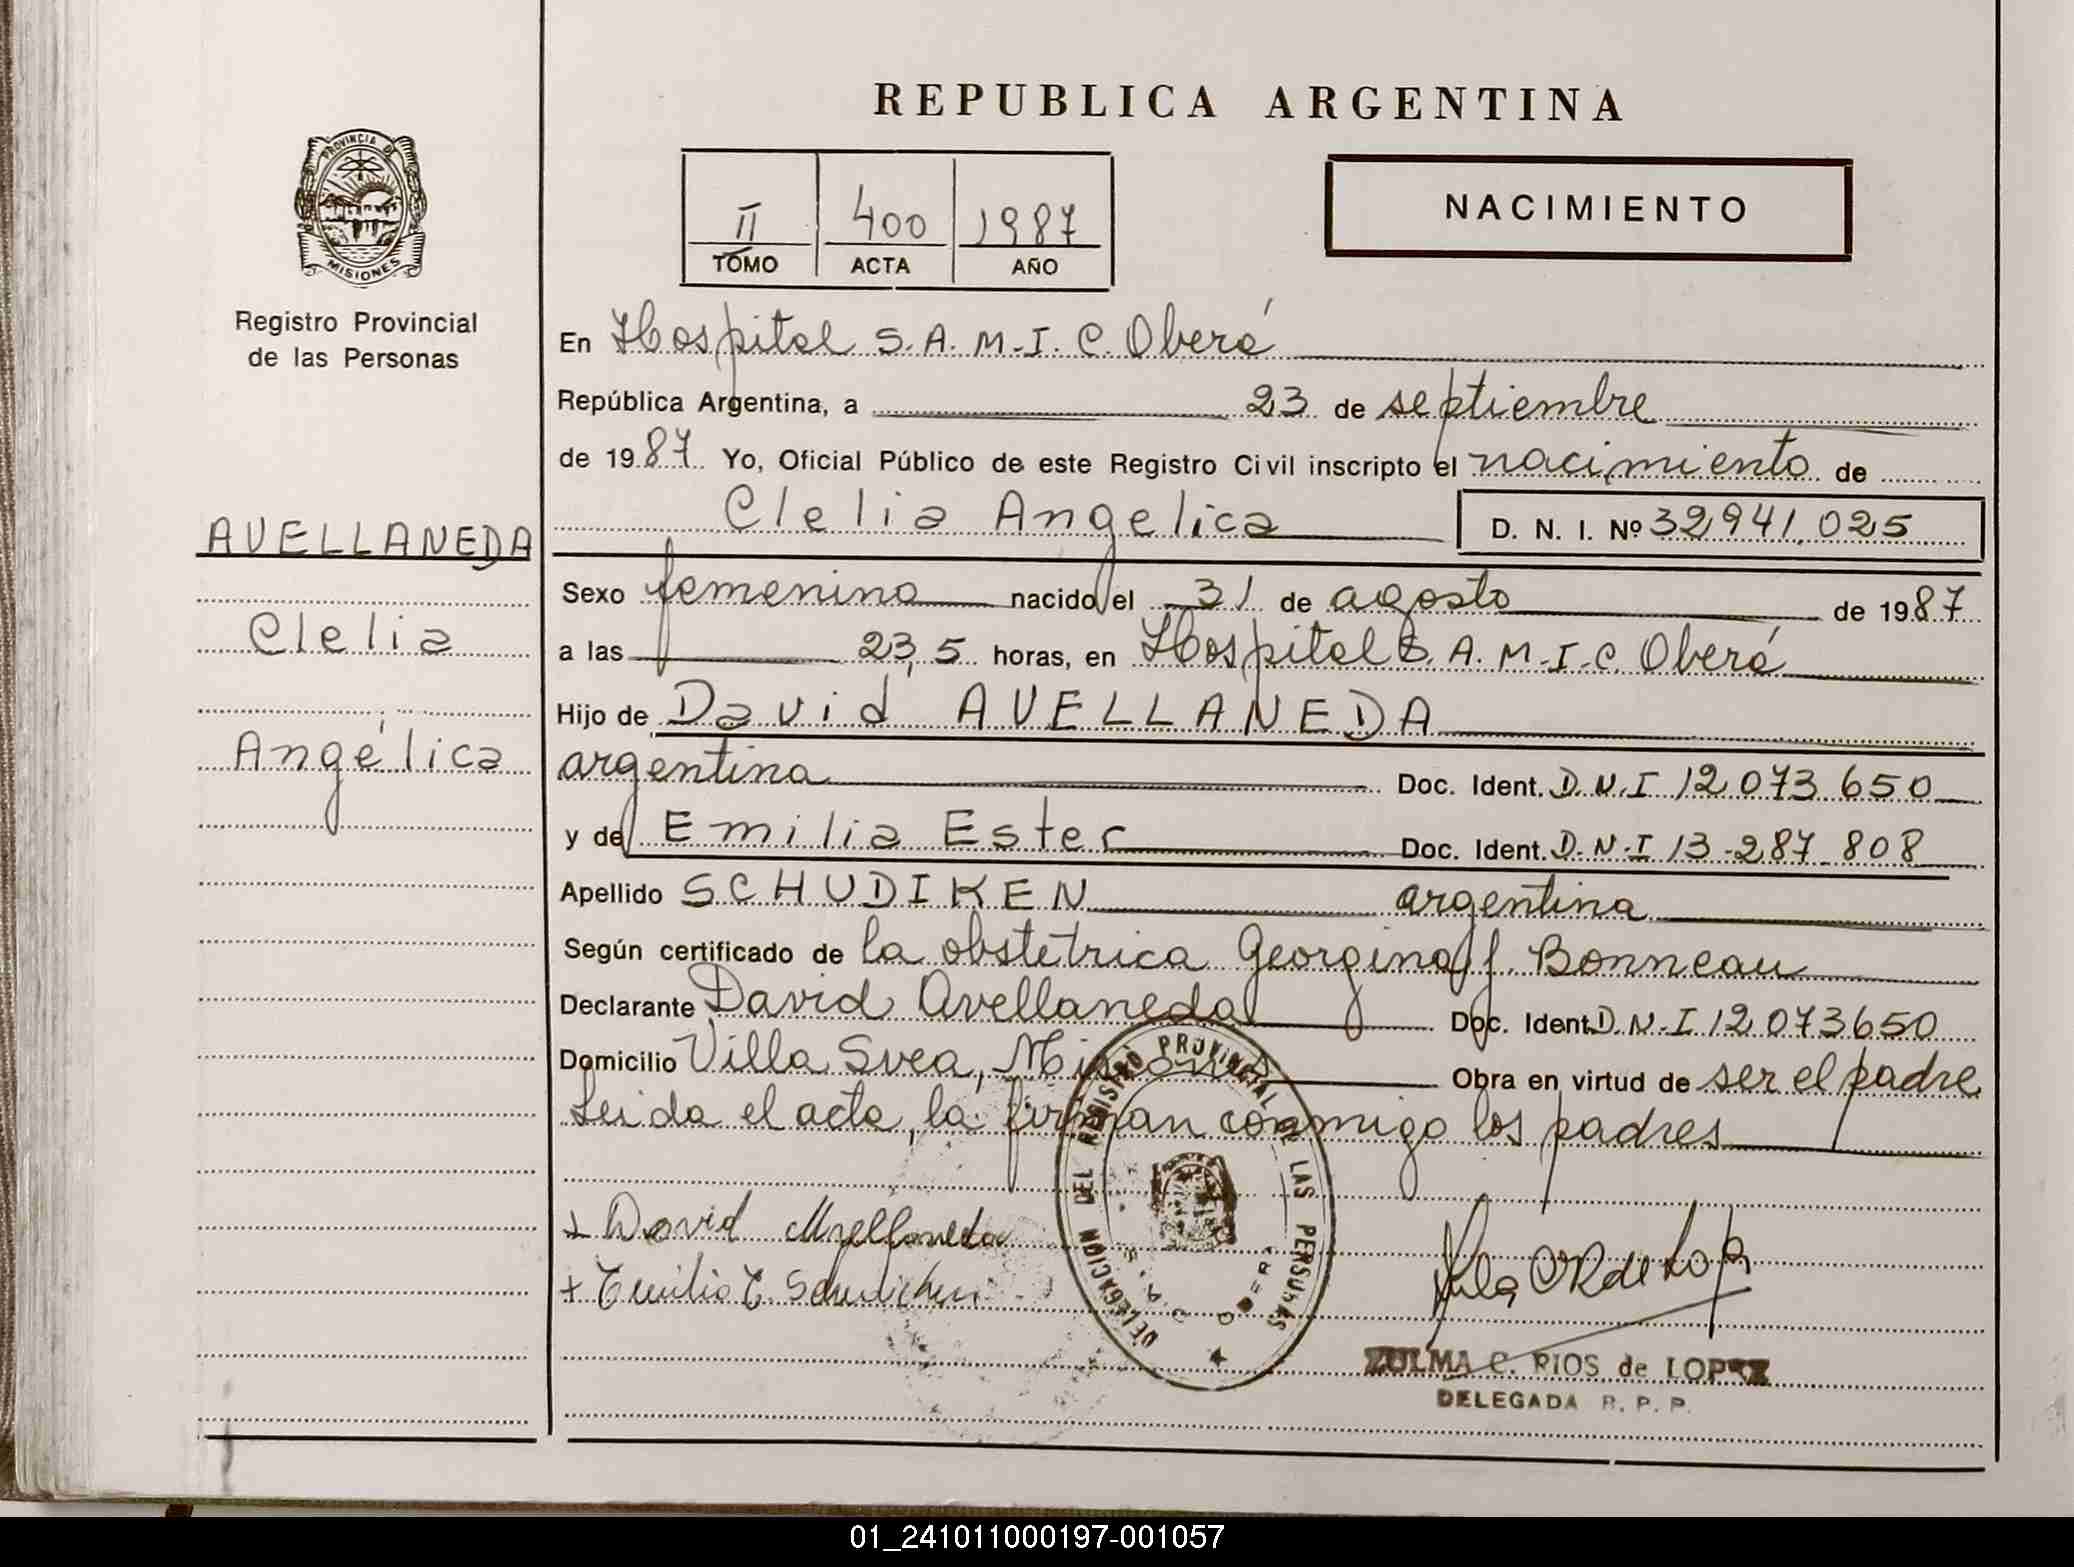 REPUBLICA ARGENTINA
PROVINCIA DE
MISIONES
Registro Provincial
de las Personas
II 400 1987
TOMO ACTA AÑO
NACIMIENTO
En Hospital S.A.M.I.C. Oberá
República Argentina, a 23 de septiembre
de 1987 Yo, Oficial Público de este Registro Civil inscripto el nacimiento de
Clelia Angelica D. N. I. Nº 32941.025
AVELLANEDA
Clelia
Angélica
Sexo femenino nacido el 31 de agosto de 1987
a las 23,5 horas, en Hospital S.A.M.I.C. Oberá
Hijo de David AVELLANEDA
argentina Doc. Ident. D.N.I 12.073.650
y de Emilia Ester Doc. Ident. D.N.I 13.287.808
Apellido SCHUDIKEN argentina
Según certificado de la obstetrica Georgina J. Bonneau
Declarante David Avellaneda Doc. Ident. D.N.I 12.073650
Domicilio Villa Svea, Misiones Obra en virtud de ser el padre
Leida el acta, la firman conmigo los padres
+ David Avellaneda
+ Emilia E.
DELEGACION DEL REGISTRO PROVINCIAL DE LAS PERSONAS
OBERA
ZULMA C. RIOS de LOPEZ
DELEGADA R. P. P.
01_241011000197-001057